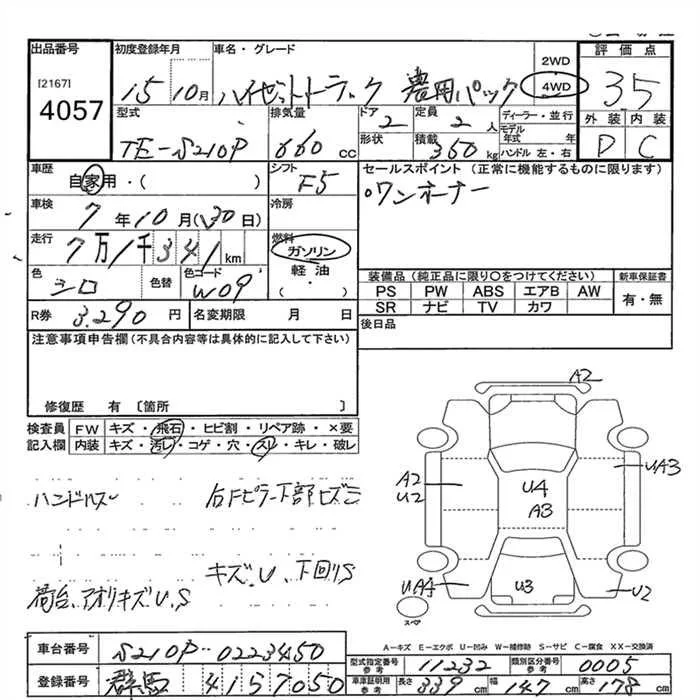 出品番号 初度登録年月 車名・グレード 2WD 評価点
[2167] 4057 15 10月 ハイゼットトラック 農用パック 4WD 35
型式 排気量 ドア 定員 ディーラー・並行 外装 内装
TE-S210P 660cc 2 2人 モデル年式 年 D C
形状 積載 350kg ハンドル 左・右
車歴 自家用・( ) シフト F5 セールスポイント(正常に機能するものに限ります)
車検 7年10月(30日) 冷房 ワンオーナー
走行 7万1千341km 燃料 ガソリン
軽油
・( )
色 シロ 色替 色コード W09 装備品(純正品に限り〇をつけてください) 新車保証書
PS PW ABS エアB AW 有・無
SR ナビ TV カワ
R券 3,290円 名変期限 月 日 後日品
注意事項申告欄(不具合内容等は具体的に記入して下さい)
修復歴 有 〔箇所 〕
検査員 FW キズ・飛石・ヒビ割・リペア跡・×要
記入欄 内装 キズ・汚レ・コゲ・穴・スレ・キレ・破レ
A2
UA3
A2
U2
U4
A3
UA4 U3 U2
スペア
右Fピラー下部ヒズミ
キズU、下回りS
荷台、アオリキズU、S
A-キズ E-エクボ U-凹み W-補修跡 S-サビ C-腐食 XX-交換済
車台番号 S210P-0223450 型式指定番号 参考 11232 類別区分番号 参考 0005
登録番号 群馬 41 57050 車庫証明用 参考 長さ 339cm 幅 147cm 高さ 178cm